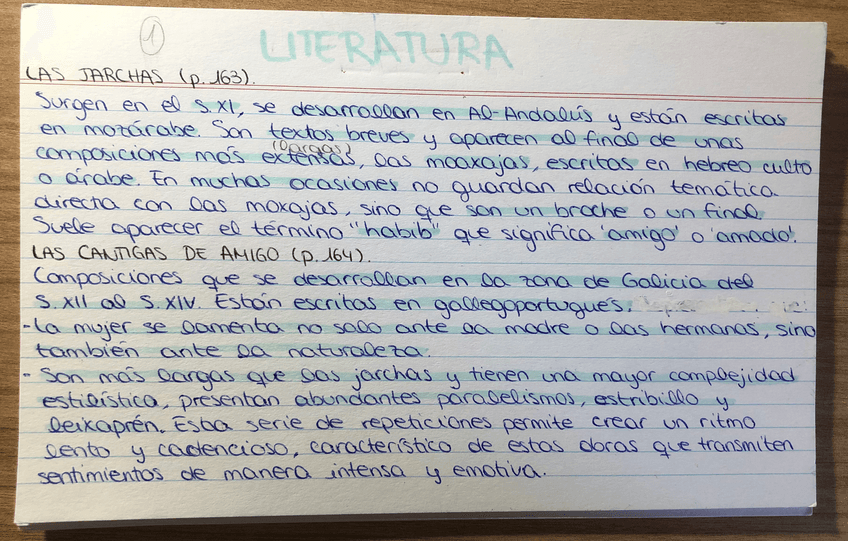 1
LITERATURA
LAS JARCHAS (p. 163).
Surgen en el S.XI, se desarrollan en Al-Andalús y están escritas
en mozárabe. Son textos breves y aparecen al final de unas
(largas)
composiciones más extensas, las moaxajas, escritas en hebreo culto
o árabe. En muchas ocasiones no guardan relación temática
directa con las moxajas, sino que son un broche o un final.
Suele aparecer el término "habib" que significa 'amigo' o 'amado'.
LAS CANTIGAS DE AMIGO (p. 164).
Composiciones que se desarrollan en la zona de Galicia del
S. XII al S. XIV. Están escritas en gallegoportugués.
- La mujer se lamenta no solo ante la madre o las hermanas, sino
también ante la naturaleza.
- Son más largas que las jarchas y tienen una mayor complejidad
estilística, presentan abundantes paralelismos, estribillo y
leixaprén. Esta serie de repeticiones permite crear un ritmo
lento y cadencioso, característico de estas obras que transmiten
sentimientos de manera intensa y emotiva.